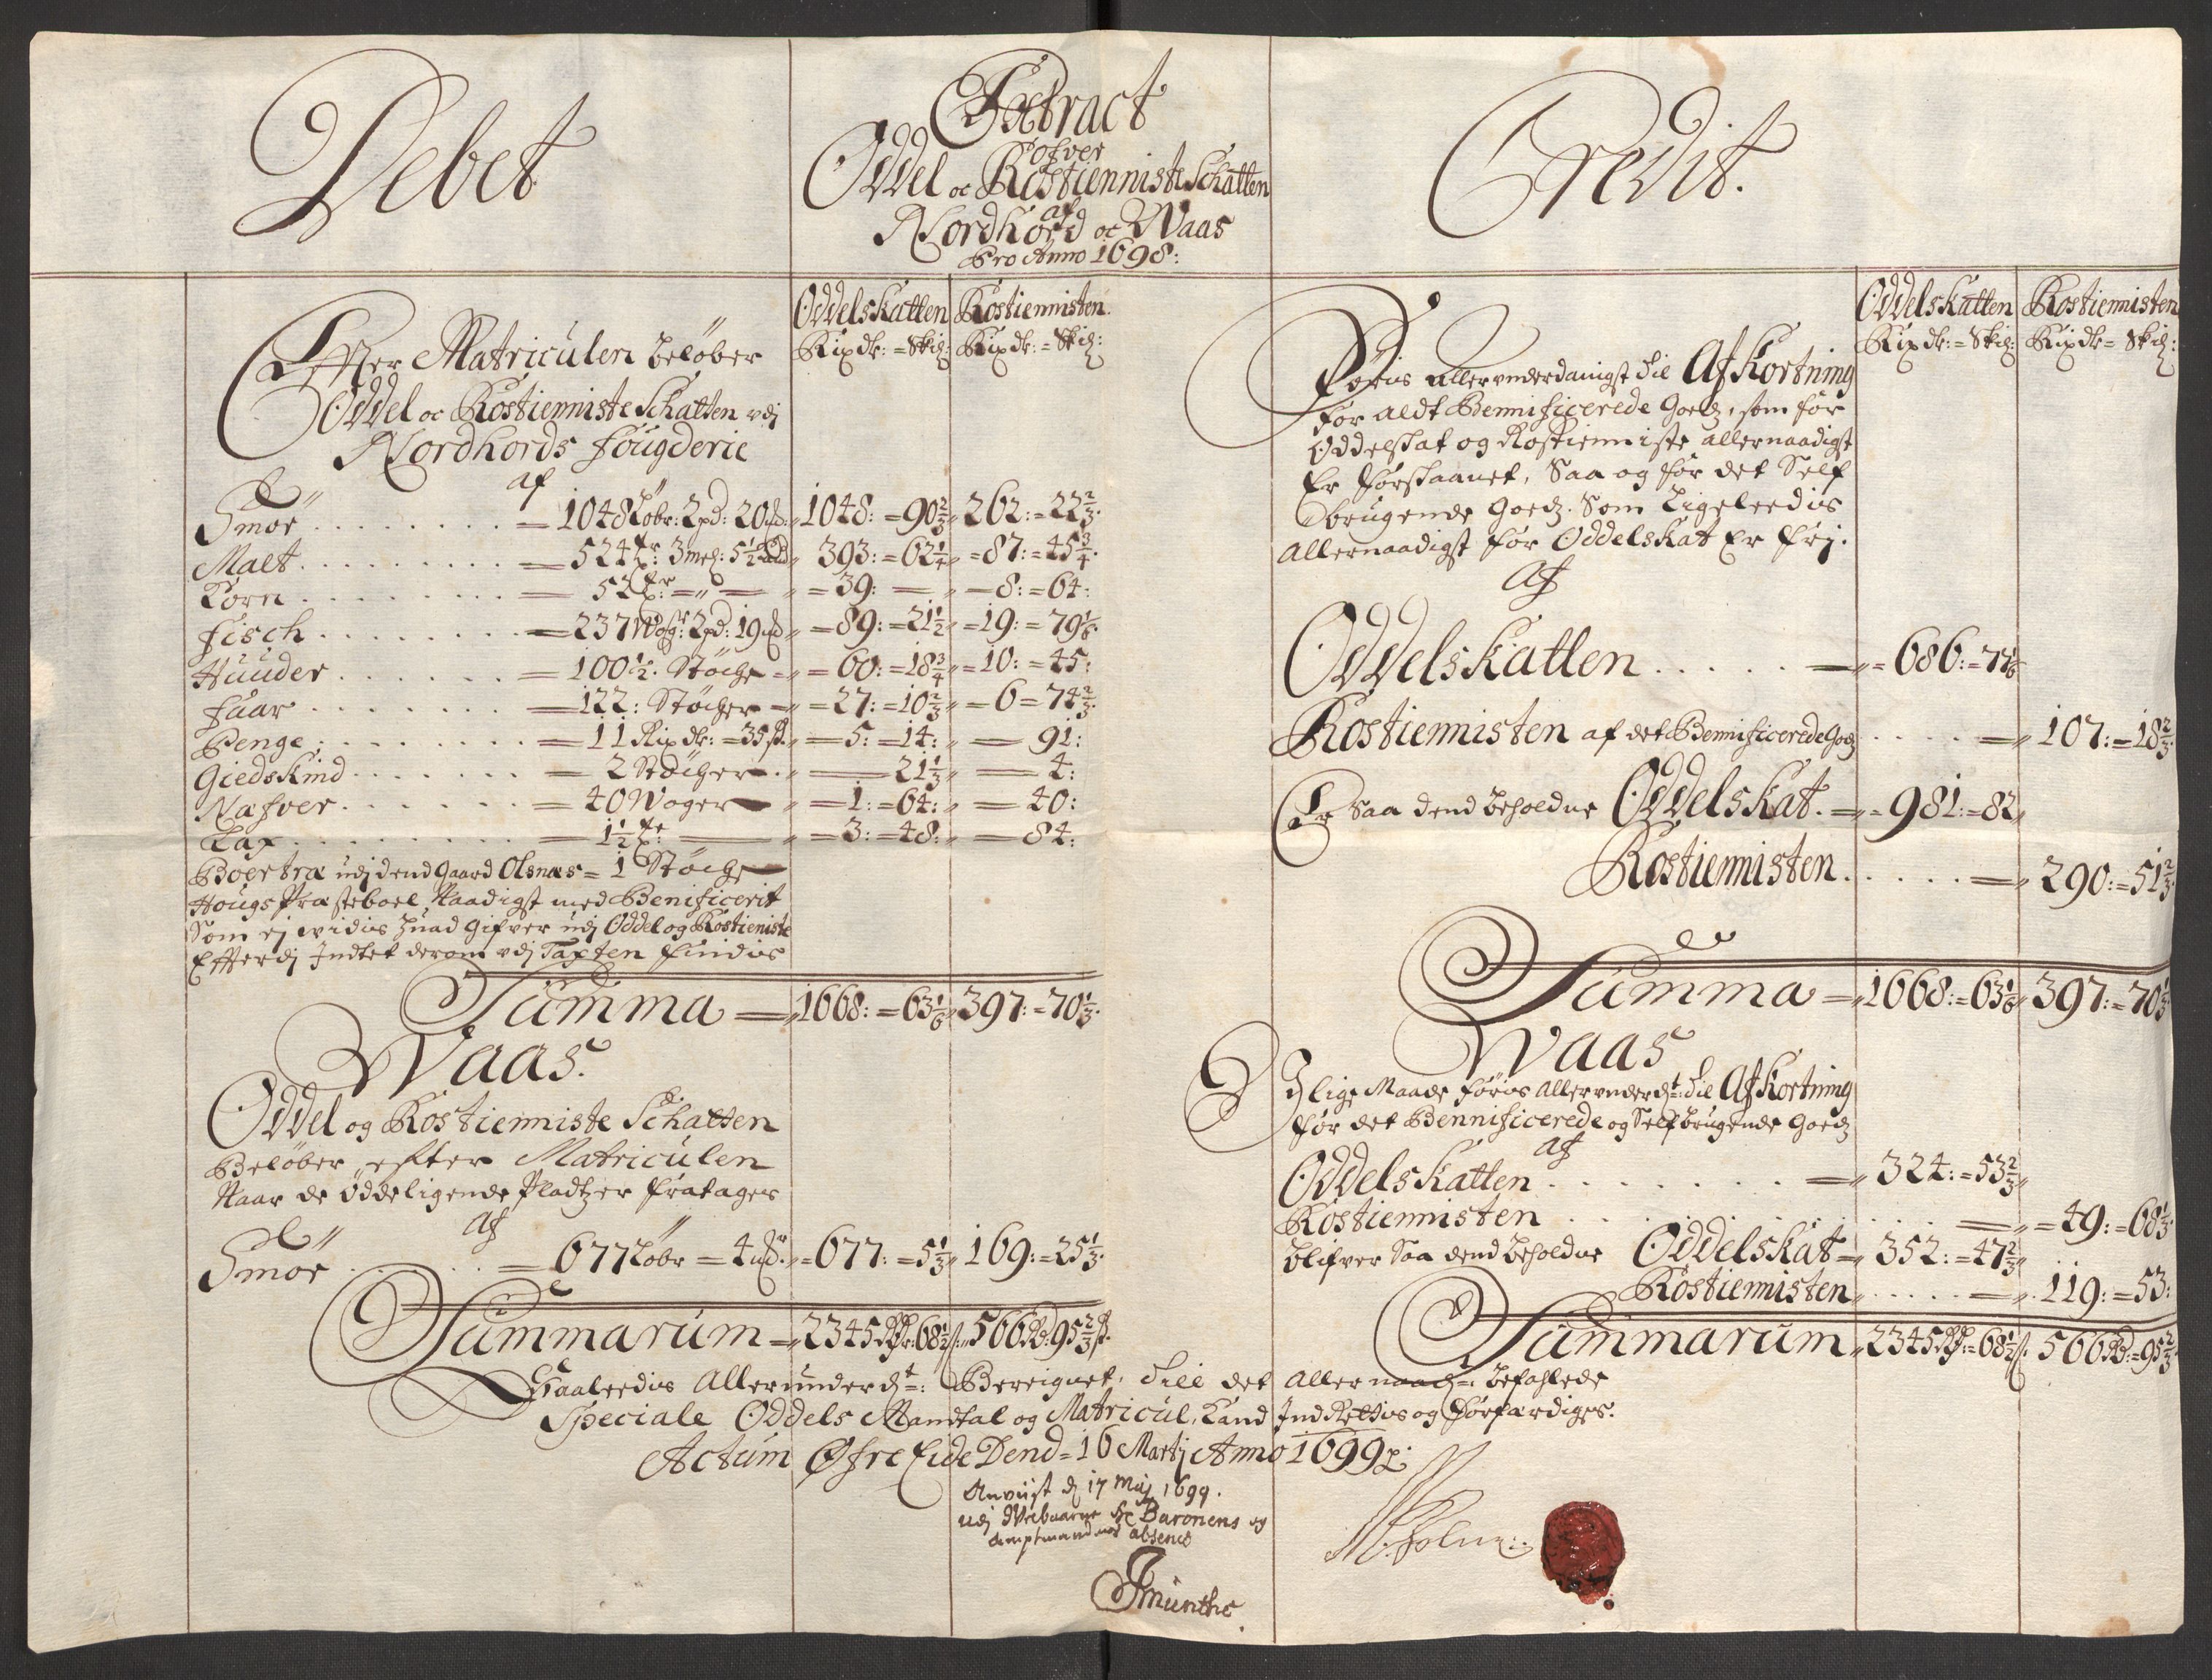 Debet
Extract
ofver
Oddel oc Rostienniste Schatten
af
Nordhord oc Waas
Pro Anno 1698:
Credit.
Oddelskatten Rostiennisten.
Rixdr: = Skil: Rixdr: = Skil:
Effter Matriculen beløber
Oddel oc Rostienniste Schatten vdj
Nordhords fougderie
af
Smør . . . . = 1048 Løbr: 2 pd: 20 = 1048: = 90 2/3 262: = 22 2/3.
Malt . . . . = 524 3 5 1/2 393: = 62 1/4 = 87: = 45 3/4.
Korn . . . . = 52 = 39: = 8: = 64:
Fisch . . . . = 237 2 pd: 19 = 89: = 21 1/2 = 19: = 79 1/8.
Huuder . . . . = 100 1/2. Støche = 60: = 18 3/4 = 10: = 45:
Faar . . . . = 122: Støcher = 27: = 10 2/3 = 6 = 74 2/3.
Penge . . . . = 11 Rixdr: = 35 = 5: = 14: = 91:
Giedskind . . . . = 2 Støcher = 21 1/3 = 4:
Næfver . . . . = 40 Woger = 1: = 64: = 40:
Lax . . . . = 1 1/2 = 3: = 48: = 84:
Boertræ udj dend Gaard Olsnæs = 1 Støche
Hougs Præsteboel Naadigst med Benificerit
Som ej vidis huad Gifver udj Oddel og Rostieniste
Efterdj Indtet derom vdj Taxten findis
Summa = 1668: = 63 1/6 397: = 70 1/3.
Waas.
Oddel og Rostienniste Schatten
Beløber efter Matriculen
Naar de ødeligende Pladtzer fratages
af
Smør . . . . = 677 Løbr = 4 = 677: = 5 1/3 169: = 25 1/3.
Summarum = 2345 68 1/2 566 95 2/3
Oddelskatten Rostiennisten
Rixdr: = Skil: Rixdr = Skil:
Føris allervnderdanigst til Afkortning
for aldt Bennificerede Goedz, som for
Oddelskat og Rostienniste allernaadigst
Er forskaanet, Saa og for det Self
brugende Goedz. Som Ligeleedis
Allernaadigst for Oddelskat Er frj.
Af
Oddelskatten . . . . = 686: = 77
Rostiennisten af det Bennificerede Goedz . . . . = 107: = 18 2/3.
Er Saa dend beholdne Oddelskat. = 981: = 82
Rostiennisten . . . . = 290: = 51 2/3.
Summa = 1668: = 63 1/6 397: = 70 1/3
Waas
Jlige Maade føris Allervnderdt: til Afkortning
for det Bennificerede og Selfbrugende Goedz
Af
Oddelskatten . . . . = 324: = 53 2/3
Rostiennisten . . . . = 49: = 68 1/3
blifver Saa dend beholdne Oddelskat = 352: = 47 2/3
Rostiennisten . . . . 119: = 53:
Summarum 2345 = 68 1/2 566 = 95 2/3
Saaleedis Allerunderdt: Beregnet, till det Allernaadt: befahlede
Speciale Oddels Mandtal og Matricul, Kand Indrettis og forfærdiges.
Actum Øfre Eide Dend = 16 Martj Anno 1699
Anviist d 17 Maj 1699.
udj Welbaarne Hr Baronens og
Amptmandens absence
JMünthe
Holm